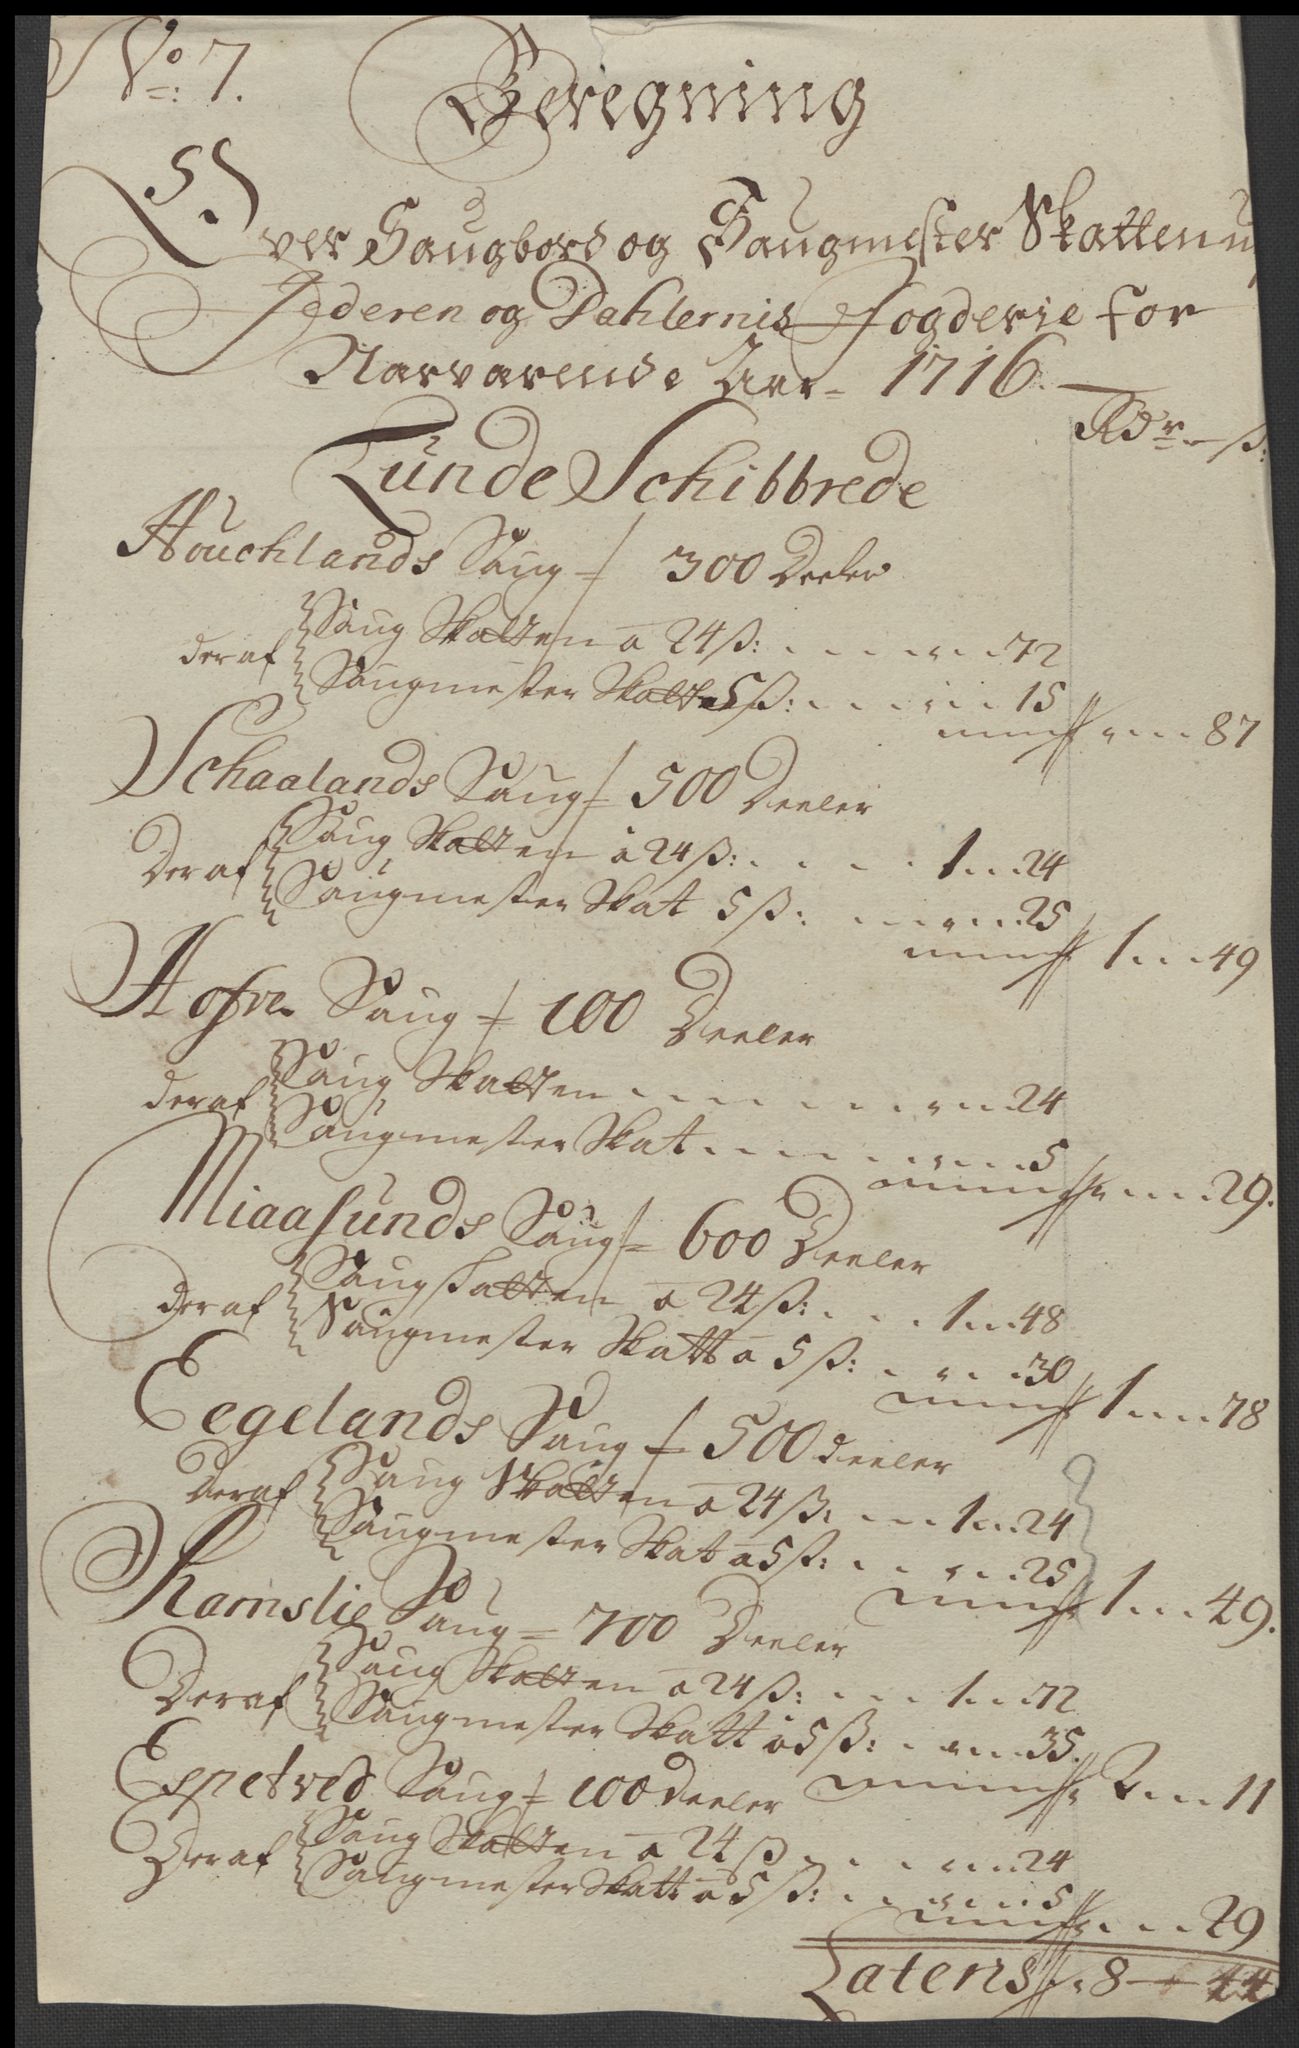 No: 7.
Beregning
Over Saugbord og Saugmester Skatten u
Jederen og Dahlernis Fogderie for
Nærværende Aar= 1716.
Rdr — ß:
Lunde Schibbrede
Houchlands Saug = 300 Deeler
deraf
Saug Skatten a 24 ß: . . . . „ . . 72
Saugmester Skatt a 5 ß: . . . „ . . 15
„ . . . 87
Schaalands Saug = 500 Deeler
Deraf
Saug Skatten a 24 ß: . . . . 1 . . . 24
Saugmester Skat 5 ß: . . . „ . . . 25
1 . . . 49
Hofve Saug = 100 Deeler
deraf
Saug Skatten . . . . . . „ . . . 24
Saugmester Skat . . . . . „ . . . 5
„ . . . 29.
Miaasunds Saug = 600 Deeler
deraf
Saug skatten a 24 ß: . . . 1 . . . 48
Saugmester Skatt a 5 ß: . . „ . . . 30
1 . . . 78
Eegelands Saug = 500 deeler
deraf
Saug Skatten a 24 ß: . . . 1 . . . 24
Saugmester Skat a 5 ß: . . „ . . . 25
1 . . . 49.
Ramslie Saug = 700 Deeler
Deraf
Saug Skatten a 24 ß: . . . 1 . . . 72
Saugmester Skatt a 5 ß: . . „ . . . 35.
2 . . . 11
Espetved Saug = 100 deeler
Deraf
Saug Skatten a 24 ß . . . „ . . . 24
Saugmester Skatt a 5 ß: . . „ . . . 5
„ . . . 29
Latens „ 8 — 44